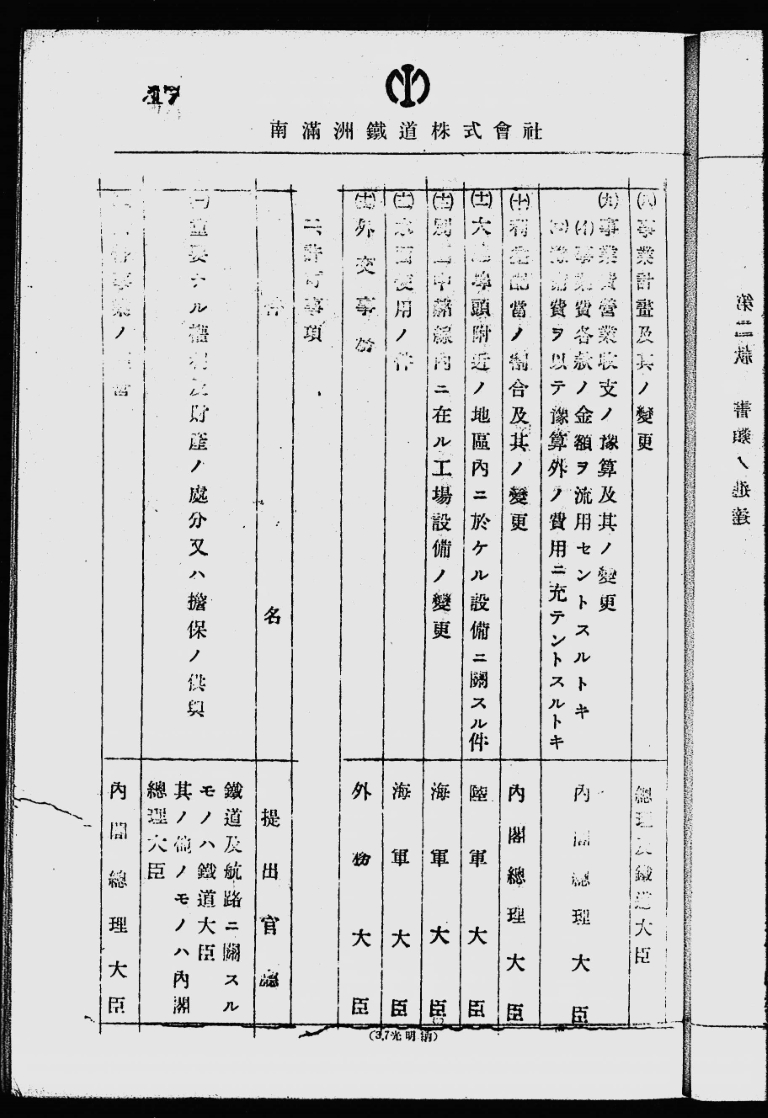 17
南滿洲鐵道株式會社
(八)事業計畫及其ノ變更
總理及鐵道大臣
(九)事業費營業收支ノ豫算及其ノ變更
(イ)事業費各款ノ金額ヲ流用セントスルトキ
(ロ)豫備費ヲ以テ豫算外ノ費用ニ充テントスルトキ
內閣總理大臣
(十)利益配當ノ割合及其ノ變更
內閣總理大臣
(十一)大連埠頭附近ノ地區內ニ於ケル設備ニ關スル件
陸軍大臣
ニ在ル工場設備ノ變更
海軍大臣
水面使用ノ件
海軍大臣
外交事務
外務大臣
二、許可事項
件名
提出官廳
(一)重要ナル權利及財產ノ處分又ハ擔保ノ供與
鐵道及航路ニ關スル
モノハ鐵道大臣
其ノ他ノモノハ內閣
總理大臣
事業ノ
內閣總理大臣
(3,7光明納)
第二款 書類ノ進達